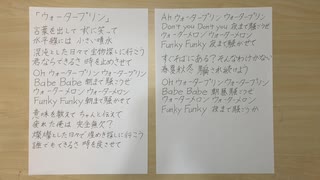 「ウォータープリン」
言葉を出して 水に笑って
水平線には 小さい噴水
混沌とした日々で宝物探しに行こう
君ならできるさ 時を止めさせて
Oh ウォータープリン ウォータープリン
Babe Babe 朝まで騒いで
ウォーターメロン ウォーターメロン
Funky Funky 朝まで騒がせて
意味を教えて ちゃんと伝えて
疲れた俺は 完全無欠?
燦燦とした日々で煌めき探しに行こう
誰でもできるさ 時を戻させて
Ah ウォータープリン ウォータープリン
Don't you Don't you 夜まで騒いで
ウォーターメロン ウォーターメロン
Funky Funky 夜まで騒がせて
すぐそばにある? そんなわけがない
春夏秋冬 騒ぎ続けよう
Oh ウォータープリン ウォータープリン
Babe Babe 朝昼騒いで
ウォーターメロン ウォーターメロン
Funky Funky 夜まで騒ごうか